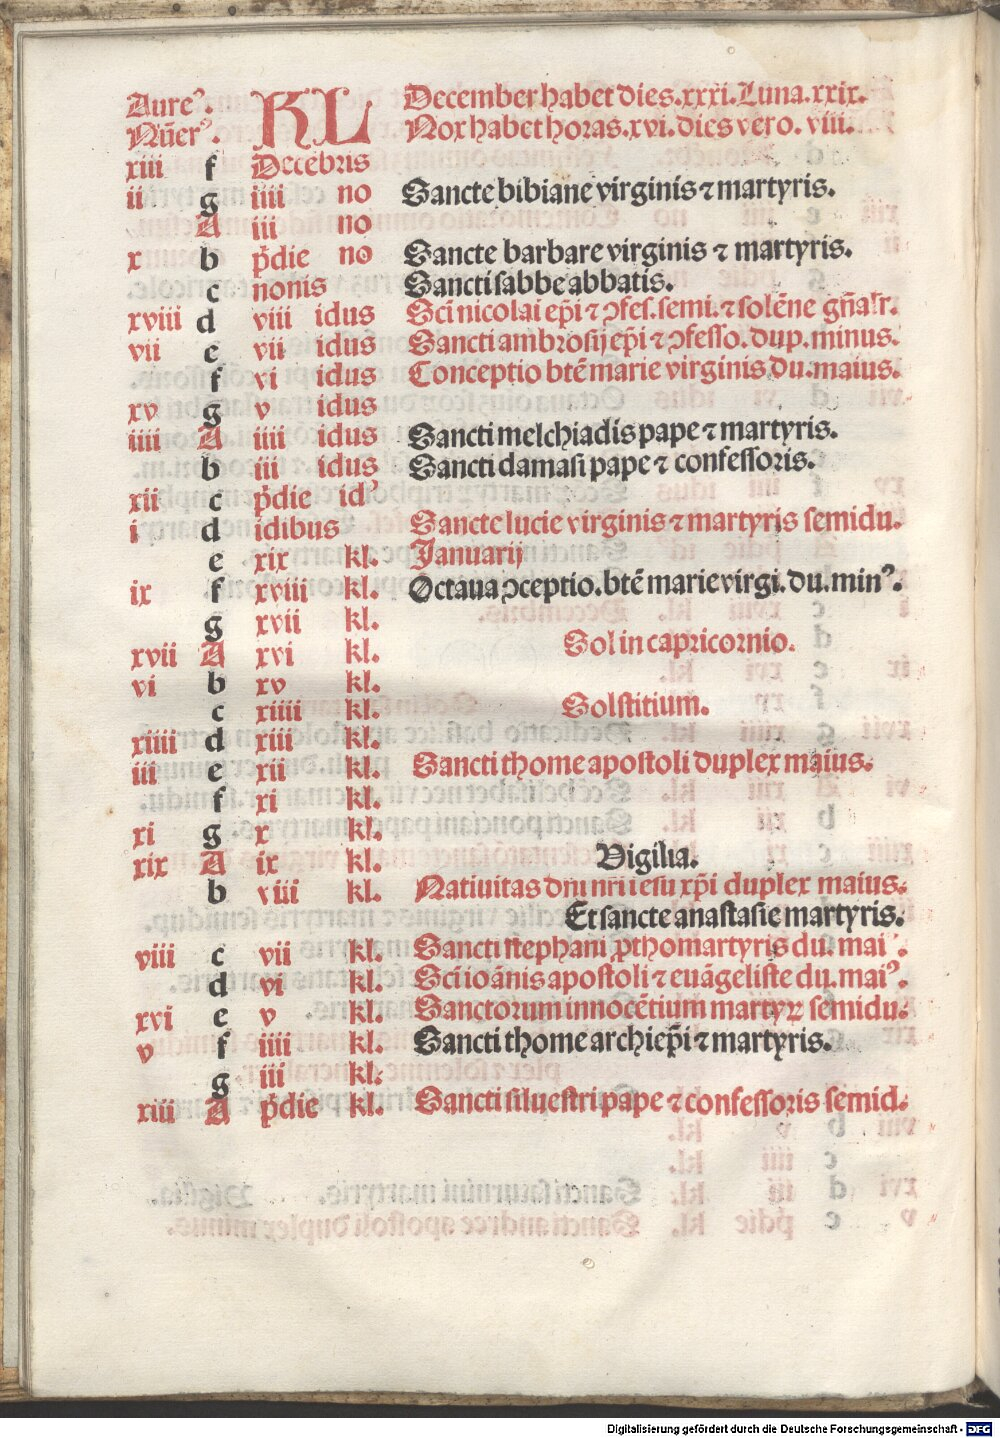 Aureꝰ. KL December habet dies.xxxi.Luna.xxix.
Nũerꝰ. Nox habet horas.xvi.dies vero.viii.
xiii f Decẽbris
ii g iiii no Sancte bibiane virginis ⁊ martyris.
A iii no
x b p̃die no Sancte barbare virginis ⁊ martyris.
c nonis Sancti sabbe abbatis.
xviii d viii idus Sc̃i nicolai ep̃i ⁊ ↄfes.semi.⁊ solẽne gñaľr.
vii e vii idus Sancti ambrosij ep̃i ⁊ ↄfesso.dup.minus.
f vi idus Conceptio btẽ marie virginis.du.maius.
xv g v idus
iiii A iiii idus Sancti melchiadis pape ⁊ martyris.
b iii idus Sancti damasi pape ⁊ confessoris.
xii c p̃die idꝰ
i d idibus Sancte lucie virginis ⁊ martyris semidu.
e xix kl. Januarij
ix f xviii kl. Octaua ↄceptio.btẽ marie virgi.du.minꝰ.
g xvii kl.
xvii A xvi kl. Sol in capricornio.
vi b xv kl.
c xiiii kl. Solstitium.
xiiii d xiii kl.
iii e xii kl. Sancti thome apostoli duplex maius.
f xi kl.
xi g x kl.
xix A ix kl. Vigilia.
b viii kl. Natiuitas dñi nr̃i iesu xp̃i duplex maius.
Et sancte anastasie martyris.
viii c vii kl. Sancti stephani ꝓthomartyris du.maiꝰ.
d vi kl. Sc̃i ioãnis apostoli ⁊ euãgeliste du.maiꝰ.
xvi e v kl. Sanctorum innocẽtium martyꝝ semidu.
v f iiii kl. Sancti thome archiep̃i ⁊ martyris.
g iii kl.
xiii A p̃die kl. Sancti siluestri pape ⁊ confessoris semid.
Digitalisierung gefördert durch die Deutsche Forschungsgemeinschaft - DFG